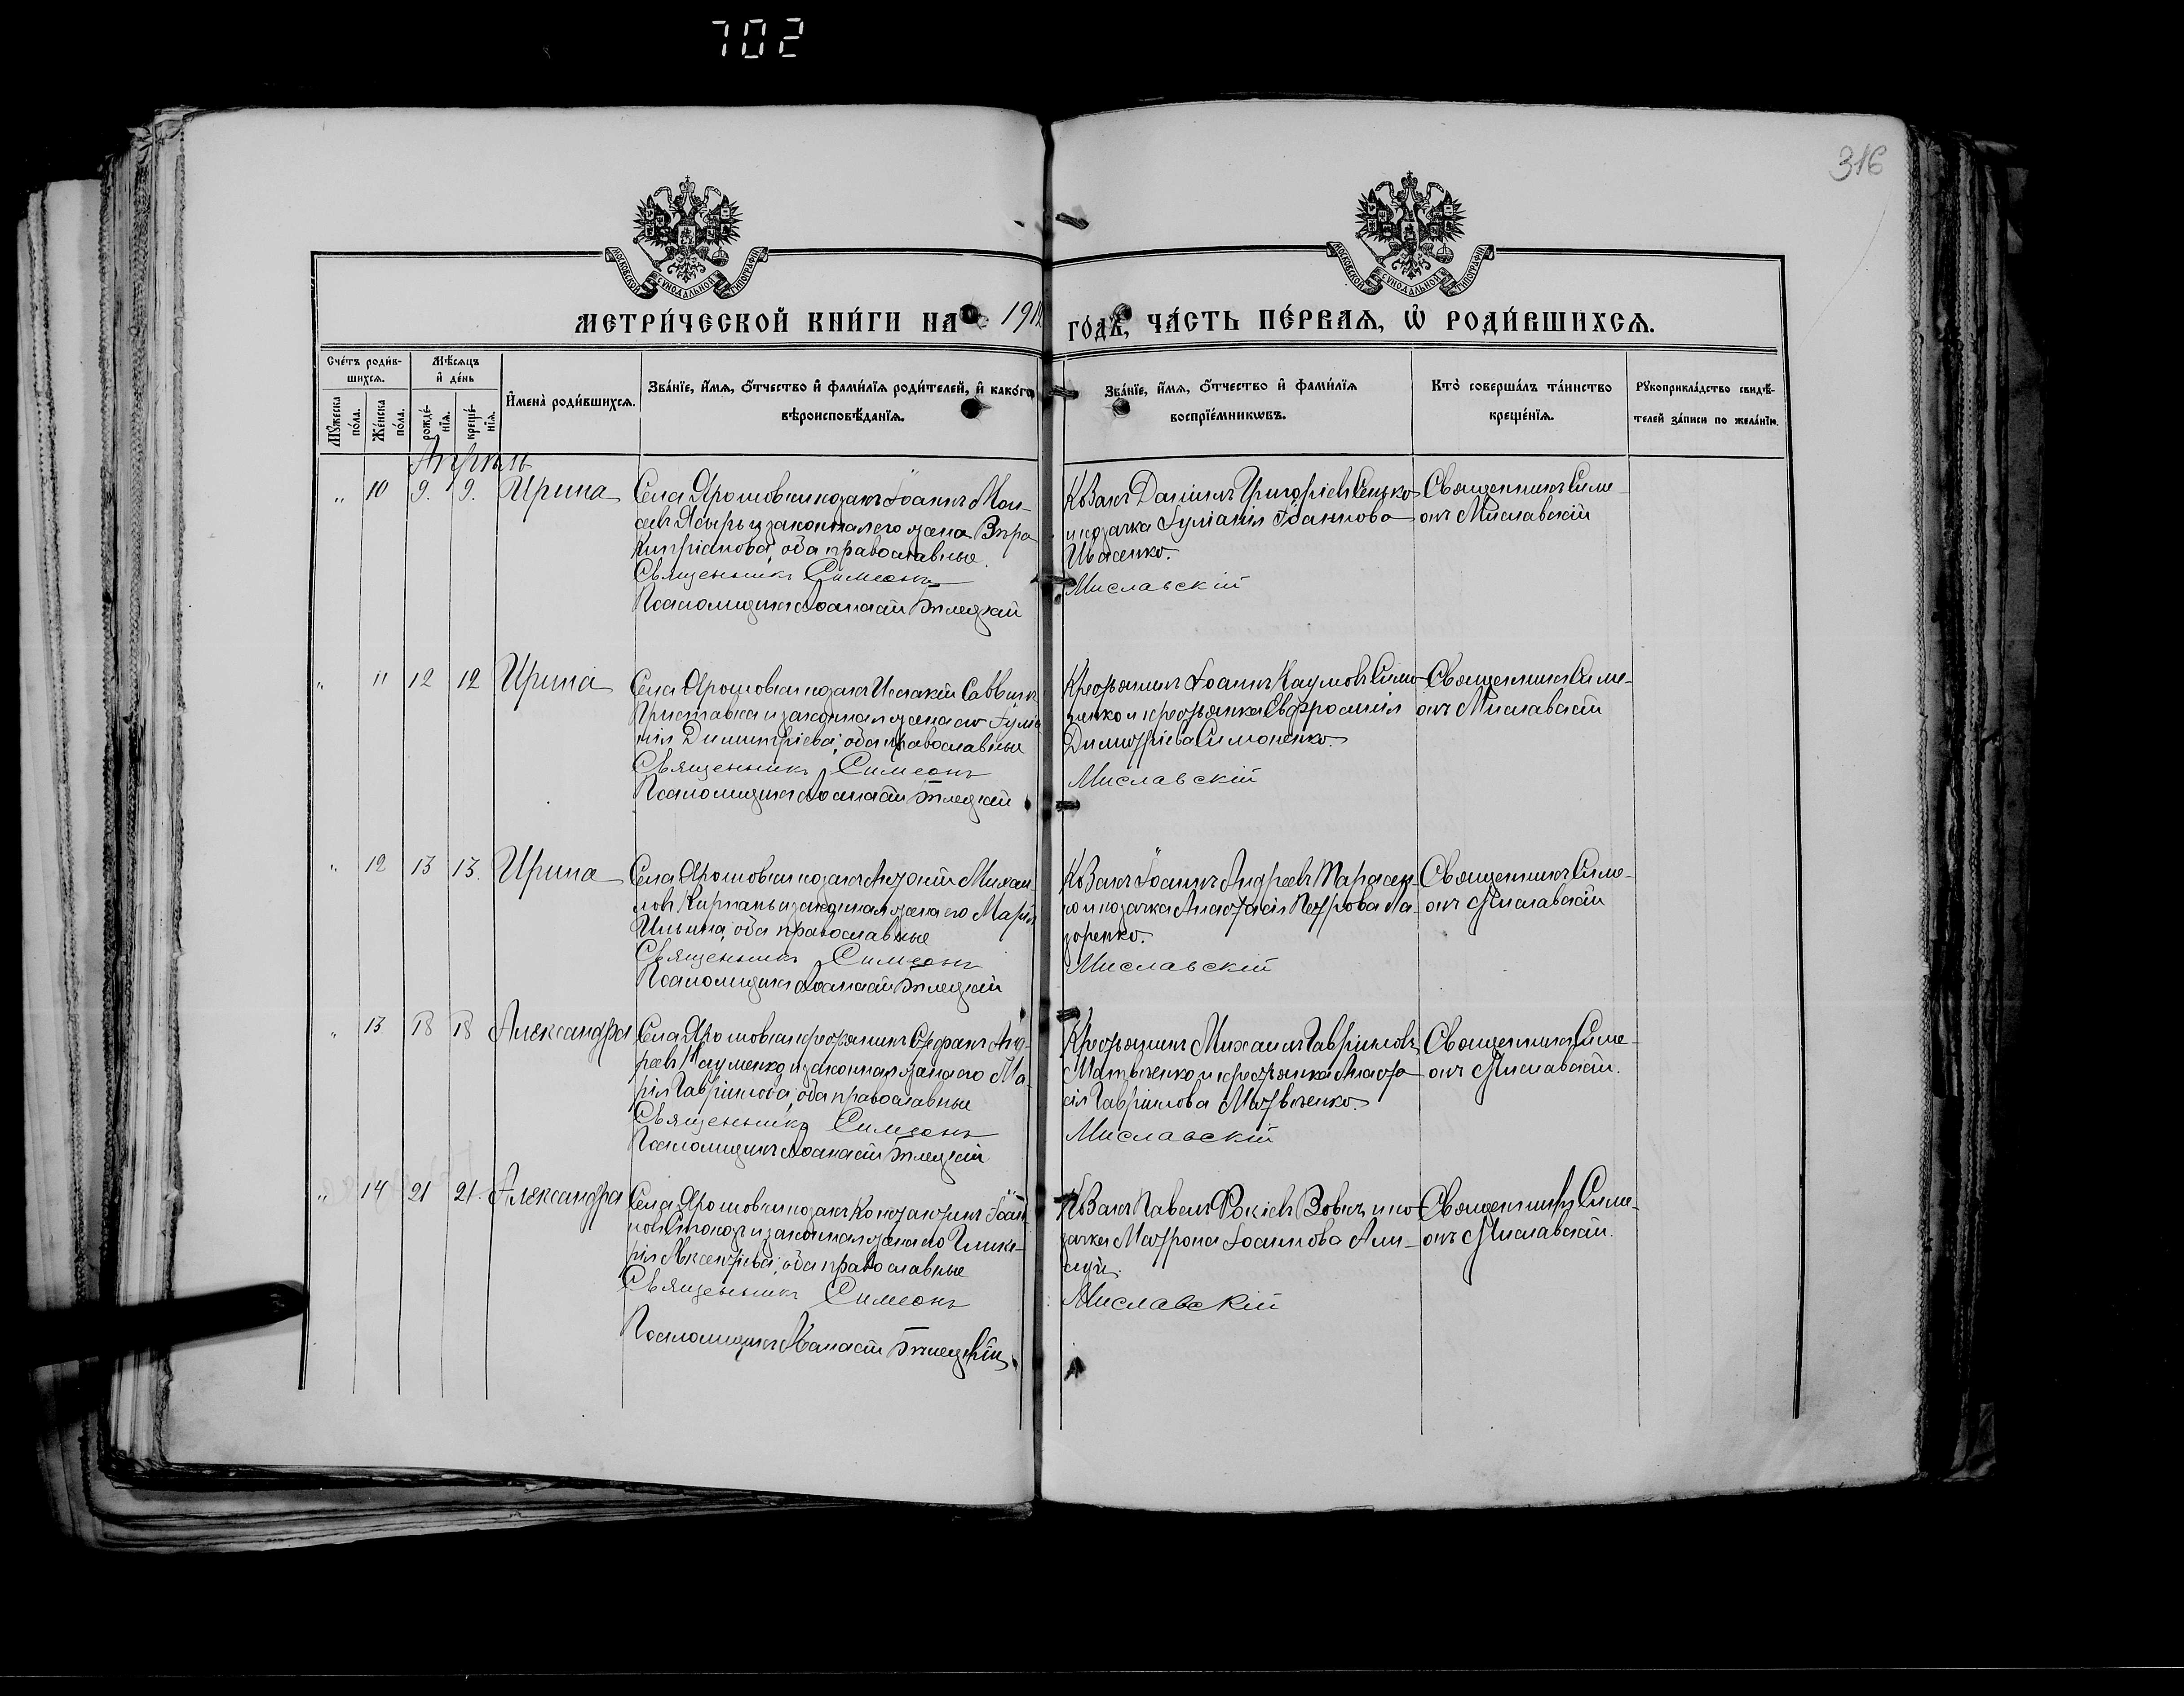 702
316
МОСКОВСКОЙ СѴНОДАЛЬНОЙ ТИПОГРАФІИ
МОСКОВСКОЙ СѴНОДАЛЬНОЙ ТИПОГРАФІИ
МЕТРИ́ЧЕСКОЙ КНИ́ГИ НА 191
ГО́ДЪ, ЧА́СТЬ ПЕ́РВАѦ, Ѽ РОДИ́ВШИХСѦ.
Сче́тъ роди́в-
шихсѧ.
Мѣ́сѧцъ
и҆ де́нь
И҆мена̀ роди́вшихсѧ.
Зва́нїе, и҆́мѧ, ѻ҆́тчество и҆ фами́лїѧ роди́телей, и҆ како́гѡ
вѣроисповѣ́данїѧ.
Зва́нїе, и҆́мѧ, ѻ҆́тчество и҆ фами́лїѧ
воспрїе́мникѡвъ.
Кто̀ соверша́лъ та́инство
креще́нїѧ.
Рꙋкоприкла́дство свидѣ́-
телей за́писи по жела́нїю.
Мꙋ́жеска
по́ла.
Же́нска
по́ла.
рожде́-
нїѧ.
креще́-
нїѧ.
Апрѣль
„ 10 9. 9. Ирина
Села Ярошовки козакъ Іоаннъ Мои-
сеевъ Ясырь и законная его жена Вѣра
Кипріанова, оба православные.
Священникъ Симеонъ
Псаломщикъ Аѳанасій Бѣлецкій
Козакъ Даніилъ Григоріевъ Сенько
и козачка Іуліанія Іоаннова
Ивасенко.
Миславскій
Священникъ Симе-
онъ Миславскій
„ 11 12 12 Ирина
Села Ярошовки козакъ Исаакій Саввинъ
Приставка и законная жена его Іуліа-
нія Димитріева, оба православные
Священникъ Симеонъ
Псаломщикъ Аѳанасій Бѣлецкій
Крестьянинъ Іоаннъ Наумовъ Симо-
ненко и крестьянка Евфросинія
Димитріева Симоненко.
Миславскій
Священникъ Симе-
онъ Миславскій
„ 12 13 13. Ирина
Села Ярошовки козакъ Антоній Михаи-
ловъ Кирпань и законная жена его Марія
Ильина, оба православные
Священникъ Симеонъ
Псаломщикъ Аѳанасій Бѣлецкій
Козакъ Іоаннъ Андреевъ Парасен-
ко и козачка Анастасія Петрова Ла-
зоренко.
Миславскій
Священникъ Симе-
онъ Миславскій
„ 13 18 18 Александра
Села Ярошовки крестьянинъ Стефанъ Анд-
реевъ Науменко и законная жена его Ма-
рія Гавріилова, оба православные
Священникъ Симеонъ
Псаломщикъ Аѳанасій Бѣлецкій
Крестьянинъ Михаилъ Гавріиловъ
Матвѣенко и крестьянка Анаста-
сія Гавріилова Матвѣенко.
Миславскій
Священникъ Симе-
онъ Миславскій.
„ 14 21 21. Александра
Села Ярошовки козакъ Константинъ Іоан-
новъ и законная жена его Глике-
рія Авксентіева, оба православные
Священникъ Симеонъ
Псаломщикъ Аѳанасій Бѣлецкій
Козакъ Павелъ Вовкъ и ко-
зачка Матрона Іоаннова
Миславскій
Священникъ Симе-
онъ Миславскій.